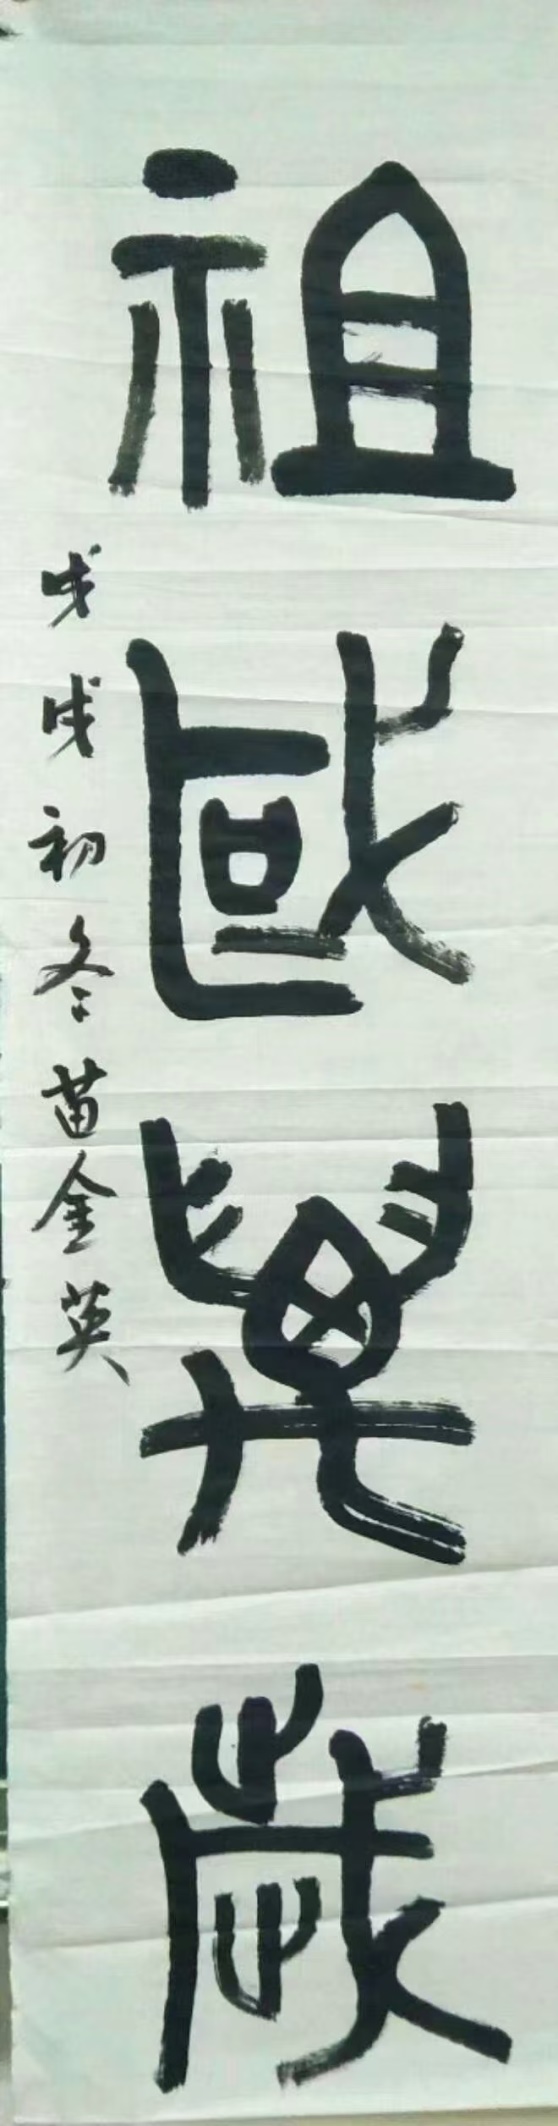 祖國萬歲
戊戌初冬苗金英